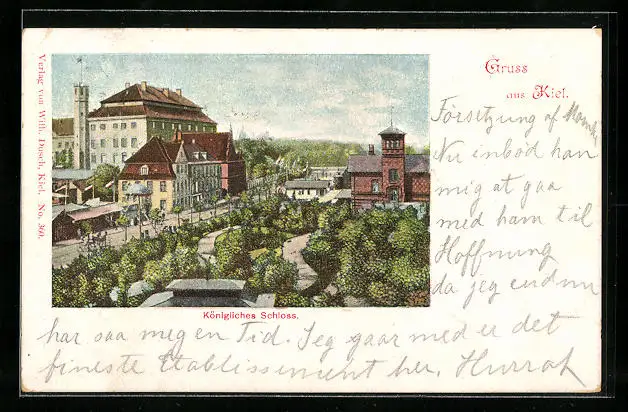 Gruss
aus Kiel.
Verlag von Wilh. Dosch, Kiel. No. 360.
Königliches Schloss.
Forsetzung af
Nu inbød han
mig at gaa
med ham til
Hoffnung
da jeg endnu
har saa meg en Tid. Jeg gaar med er det
fineste Etablissement her. Hurrah